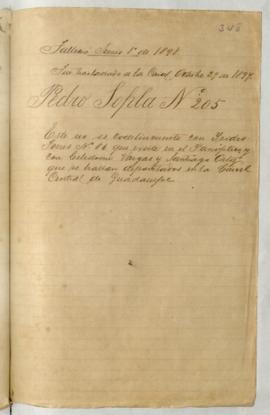 348
Falleció Junio 1º de 1898.
Fue trasladado a la Carcel, Octubre 29 de 1897.
Pedro Sopla Nº 205
Este reo es coodelincuente con Isidro
Torres Nº 66 que existe en el Panóptico y
con Celedonio Vargas y Santiago
que se hallan depositados en la Carcel
Central de Guadalupe